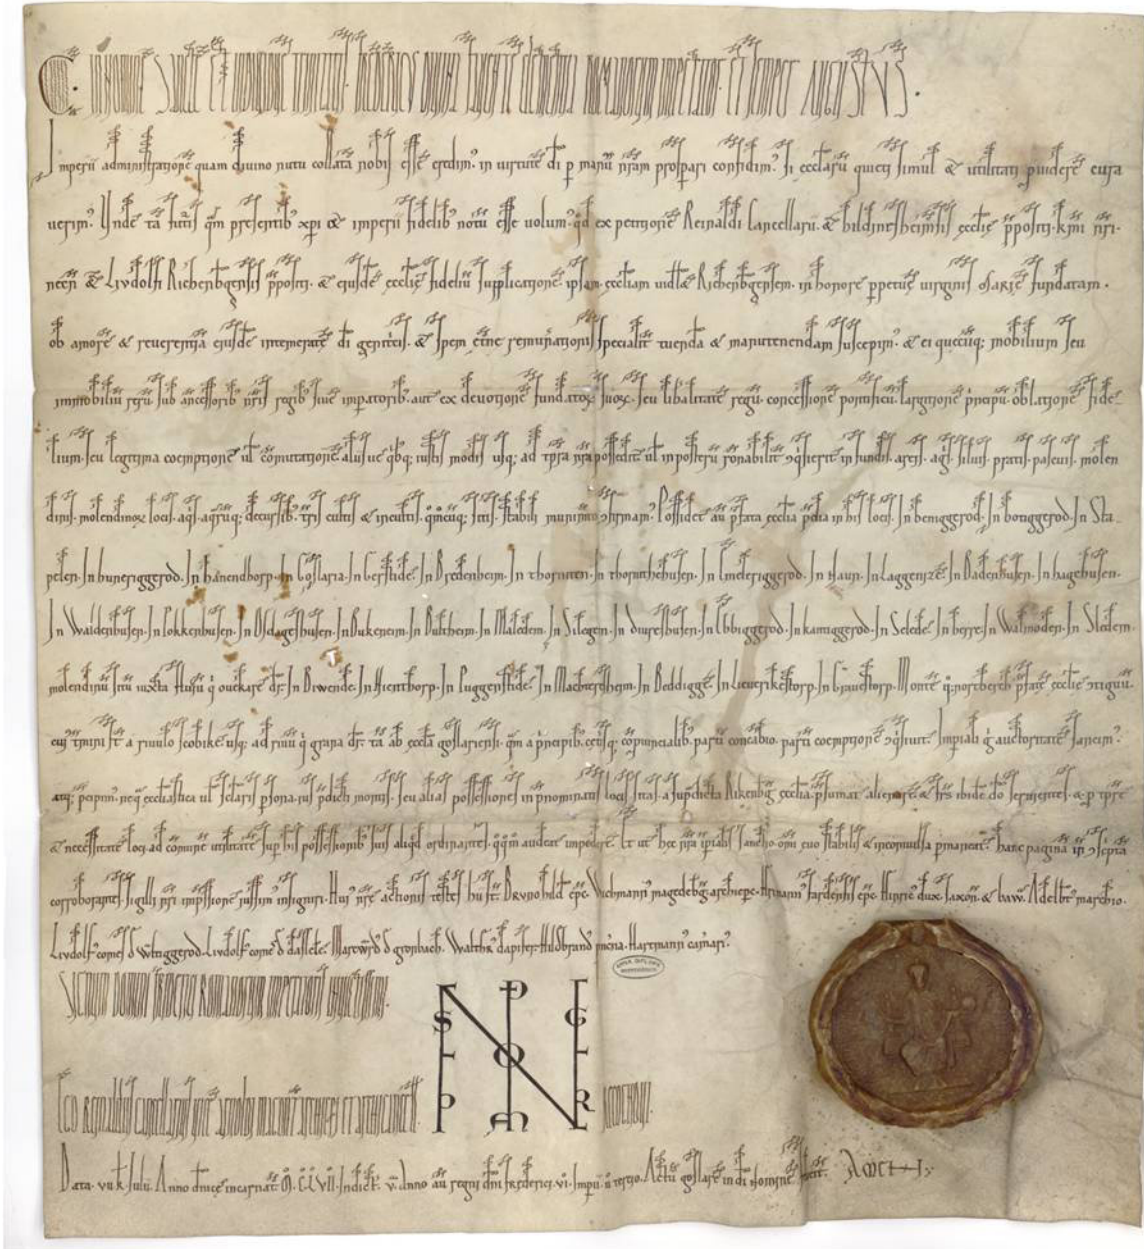 C. IN NOMINE SANCTE ET INDIVIDUE TRINITATIS. FREDERICUS DIVINA FAVENTE CLEMENTIA ROMANORUM IMPERATOR ET SEMPER AUGUSTUS.
Imperii administratione quam divino nutu collata nobis esse credim⁹. in virtute di p manu nram prosperari confidim⁹. si ecclaru quieti simul & utilitati pvidere cura
verim⁹. Unde ta futuris qm presentib⁹ xpi & imperii fidelib⁹ notu esse volum⁹. qd ex petitione Reinaldi Cancellarii. & hildineshemsis ecclie ppositi. kmi nri.
necn & Livdolfi Richenbgensis ppositi. & eiusde ecclie fideliu supplicatione. ipsam ecclam videlic& Richenbgensem. in honore ppetue virginis Marie fundatam.
ob amore & reverentia eiusde intemerate di genitricis. & spem etne remunationis specialit tuenda & manutenendam suscepim⁹. & ei quecuq; mobilium seu
immobiliu reru sub ancessorib⁹ nris regib⁹ sive impatorib⁹. aut ex devotione fundatoꝝ suoꝝ. seu libalitate regu. concessione pontificu. largitione pncipu. oblatione fide
lium. seu legitima coemptione ul comutatione aliisve qbq; iustis modis usq; ad tpra nra possedit ul in posteru ronabilit ꝯqsierit in fundis. areis. agris. silvis. pratis. pascuis. molen
dinis. molendinoꝝ locis. aqis. aqruq; decursib⁹. tris cultis & incultis. stabili munimine ꝯfirmam⁹. Possidet au pfata ecclia pdia in his locis. In henniggerod. In bodiggerod. In Sta
pelen. In huneriggerod. In hanendhorp. In Goslaria. In Gerstide. In Bredenheim. In thornten. In thornthehusen. In Emeleriggerod. In Haun. In Laggenize. In Badenhusen. In hagehusen.
In Waldenhusen. In Lokkenhusen. In Dschageshusen. In Bukenem. In Bultheim. In Maledem. In Silegem. In diureshusen. In Ebbiggerod. In kanniggerod. In Selede. In herre. In Walmoden. In Sledem
molendinu situ iuxta flusiu q ovekare dr. In Biwende. In Hienthorp. In Luggenstide. In Machtersheim. In Beddigge. In Lieverikestorp. In Gravestorp. Monte q; northberch pfate ecclie ꝯtiguu.
cui⁹ tmini st a rivulo scobike usq; ad rivu q grana dr. ta ab eccla goslariensi. qm a pncipib⁹. partim concabio. parti coemptione ꝯqsivit. Impiali g auctoritate sancim⁹.
atq; pcipim⁹. neq ecclastica ul sclaris psona. ius pdicti montis. seu alias possessiones in pnominatis locis sitas. a supdicta Rikenbg ecclia. psumat alienare & frs ibide do servientes. & p tpre
& necessitate loci. ad comune utilitate sup his possessionib⁹ suis aliqd ordinantes. qqm audeat impedire. Et ut hec nra ipialis sanctio. omi evo stabilis & inconvulsa pmaneat. hanc pagina in ꝯscpta
corroborantes. sigilli nri impssione iussim⁹ insigniri. Hui⁹ nre actionis testes hii st. Bruno hild epc. Wichmann⁹ magedebg archiepc. Hrmann⁹ fardensis epc. Hinric⁹ dux saxon. & baw. Adelbt⁹ marchio.
Livdolf⁹ comes d Wltiggerod. Livdolf⁹ come d dassele. Marcwrd⁹ d gronbach. Walthr⁹ dapifer. Hildbrand⁹ pincna. Hartmann⁹ camari⁹.
SIGNUM DOMINI FREDERICI ROMANORUM IMPERATORIS INVICTISSIMI.
EGO REINALDUS CANCELLARIUS VICE ARNOLDI MAGONTINI ARCHIEPI ET ARCHICANCELL. RECOGNOVI.
Data. vii. k. Iulii. Anno dnice incarnat. M. C. LVII. Indict. v. Anno au regni dni frederici. vi. Impii. u tercio. Actu goslarie in di nomine felicit. AMEN.